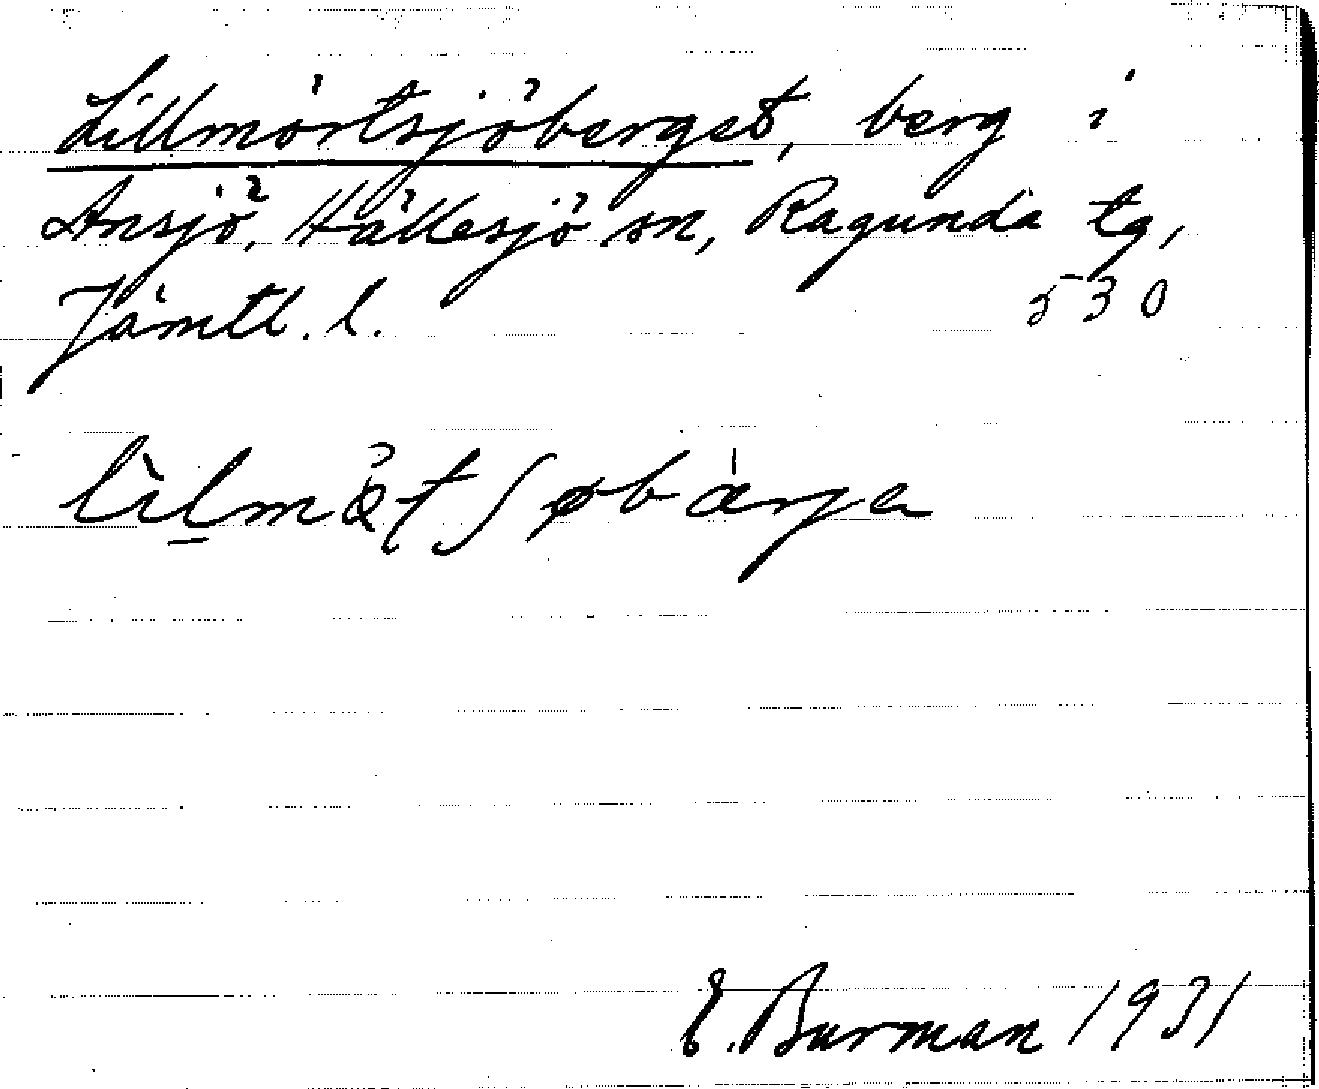 Lillmörtsjöberget, berg i
Ansjö, Hällesjö sn, Ragunda tg,
Jämtl. l. 530
E. Burman 1931